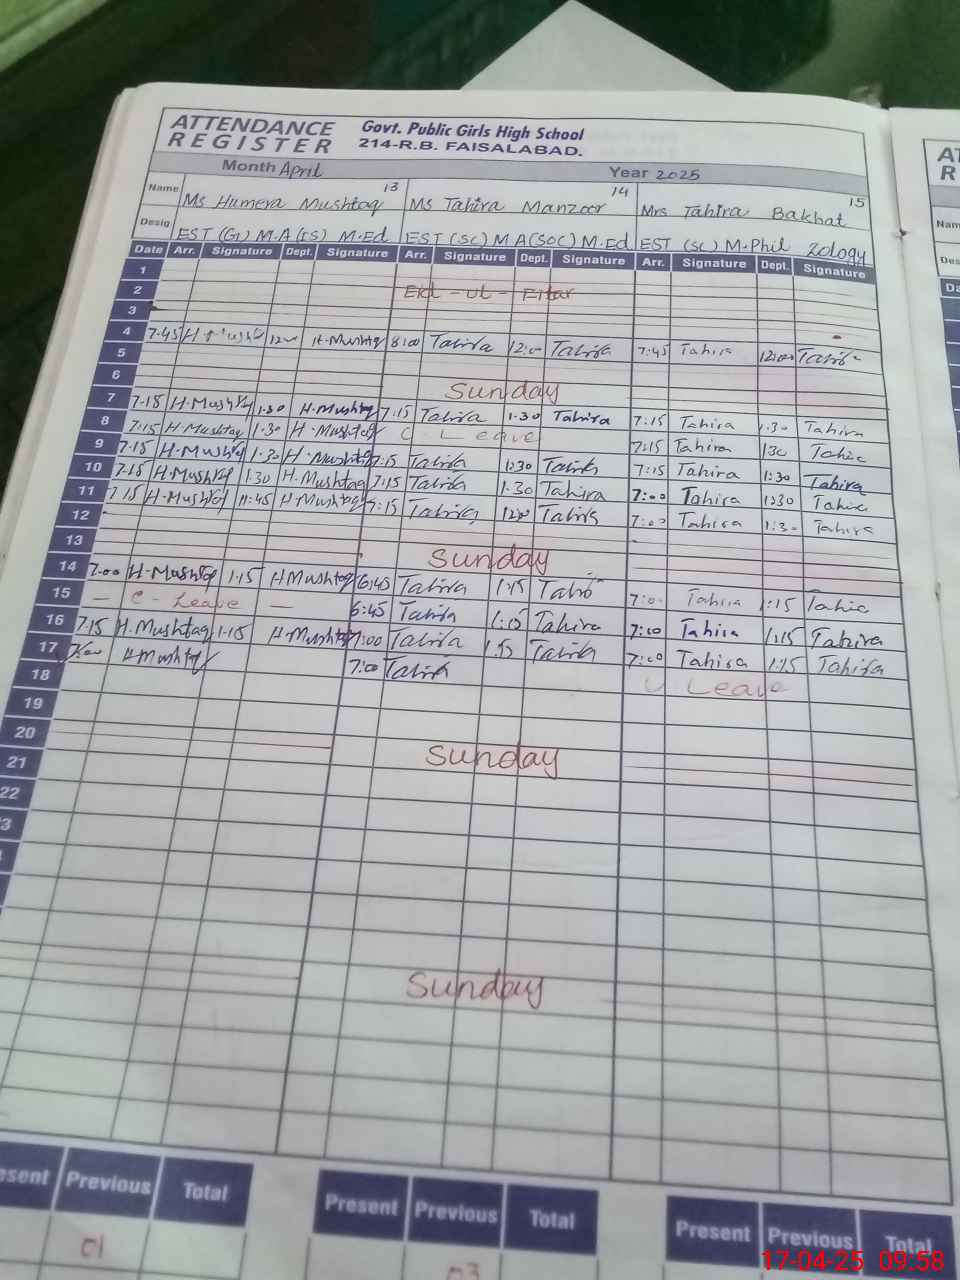 ATTENDANCE REGISTER
Govt. Public Girls High School
214-R.B. FAISALABAD.
Month April Year 2025
Name Ms Humera Mushtaq 13 Ms Tahira Manzoor 14 Mrs Tahira Bakhat 15
Desig EST (G) M.A (IS) M.Ed EST (SC) M A(SOC) M.Ed EST (SC) M.Phil Zology
Date Arr. Signature Dept. Signature Arr. Signature Dept. Signature Arr. Signature Dept. Signature
1
2 Eid - ul - Fitar
3
4 7.45 H.Mushtaq H.Mushtaq 8:00 Tahira 12:00 Tahira 7:45 Tahira 12:00 Tahira
5
6 Sunday
7 7.15 H.Mushtaq 1.30 H.Mushtaq 7:15 Tahira 1.30 Tahira 7:15 Tahira 1.30 Tahira
8 7:15 H.Mushtaq 1.30 H.Mushtaq C Leave 7:15 Tahira 130 Tahira
9 7.15 H.Mushtaq 1.30 H.Mushtaq 7:15 Tahira 1:30 Tahira 7:15 Tahira 1:30 Tahira
10 7.15 H.Mushtaq 1.30 H.Mushtaq 7:15 Tahira 1.30 Tahira 7:00 Tahira 1:30 Tahira
11 7.15 H.Mushtaq 11:45 H.Mushtaq 7:15 Tahira Tahira 7:00 Tahira 1:30 Tahira
12
13 Sunday
14 7.00 H.Mushtaq 1.15 H Mushtaq 6:45 Tahira 1:15 Tahira 7:00 Tahira 1:15 Tahira
15 — C - Leave — 6:45 Tahira 1:15 Tahira 7:00 Tahira 1:15 Tahira
16 7.15 H.Mushtaq 1.15 H.Mushtaq 7:00 Tahira 1:15 Tahira 7:00 Tahira 1:15 Tahira
17 7:00 H.Mushtaq 7:00 Tahira Leave
18
19
20 Sunday
21
22
3
Sunday
esent Previous Total Present Previous Total Present Previous Total
01 03
17-04-25 09:58